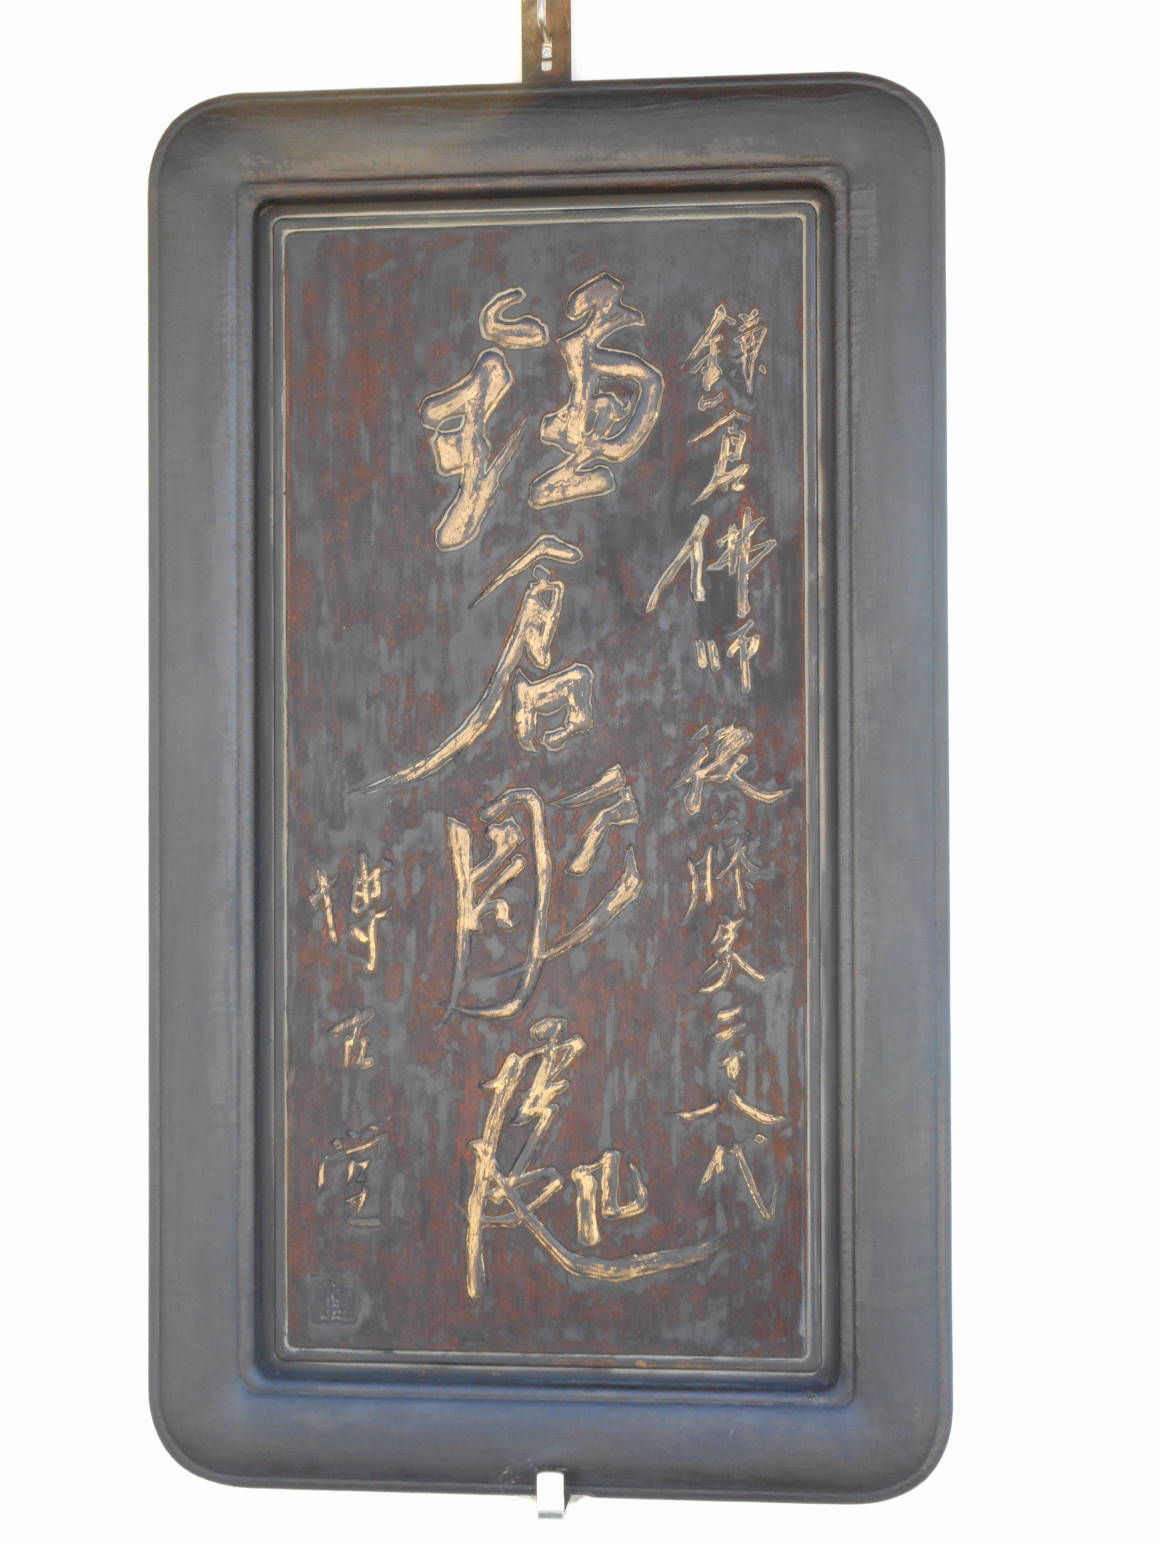 鎌倉佛師 後藤家二十八代
鎌倉彫處
博古堂